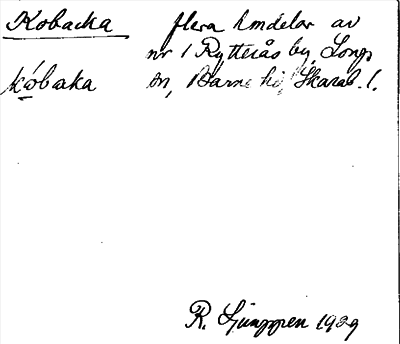 Kobacka flera hmdelar av
nr 1 Rytterås by, Longs
kóbaka sn, Barne hd, Skarab. l.
R. Ljunggren 1929